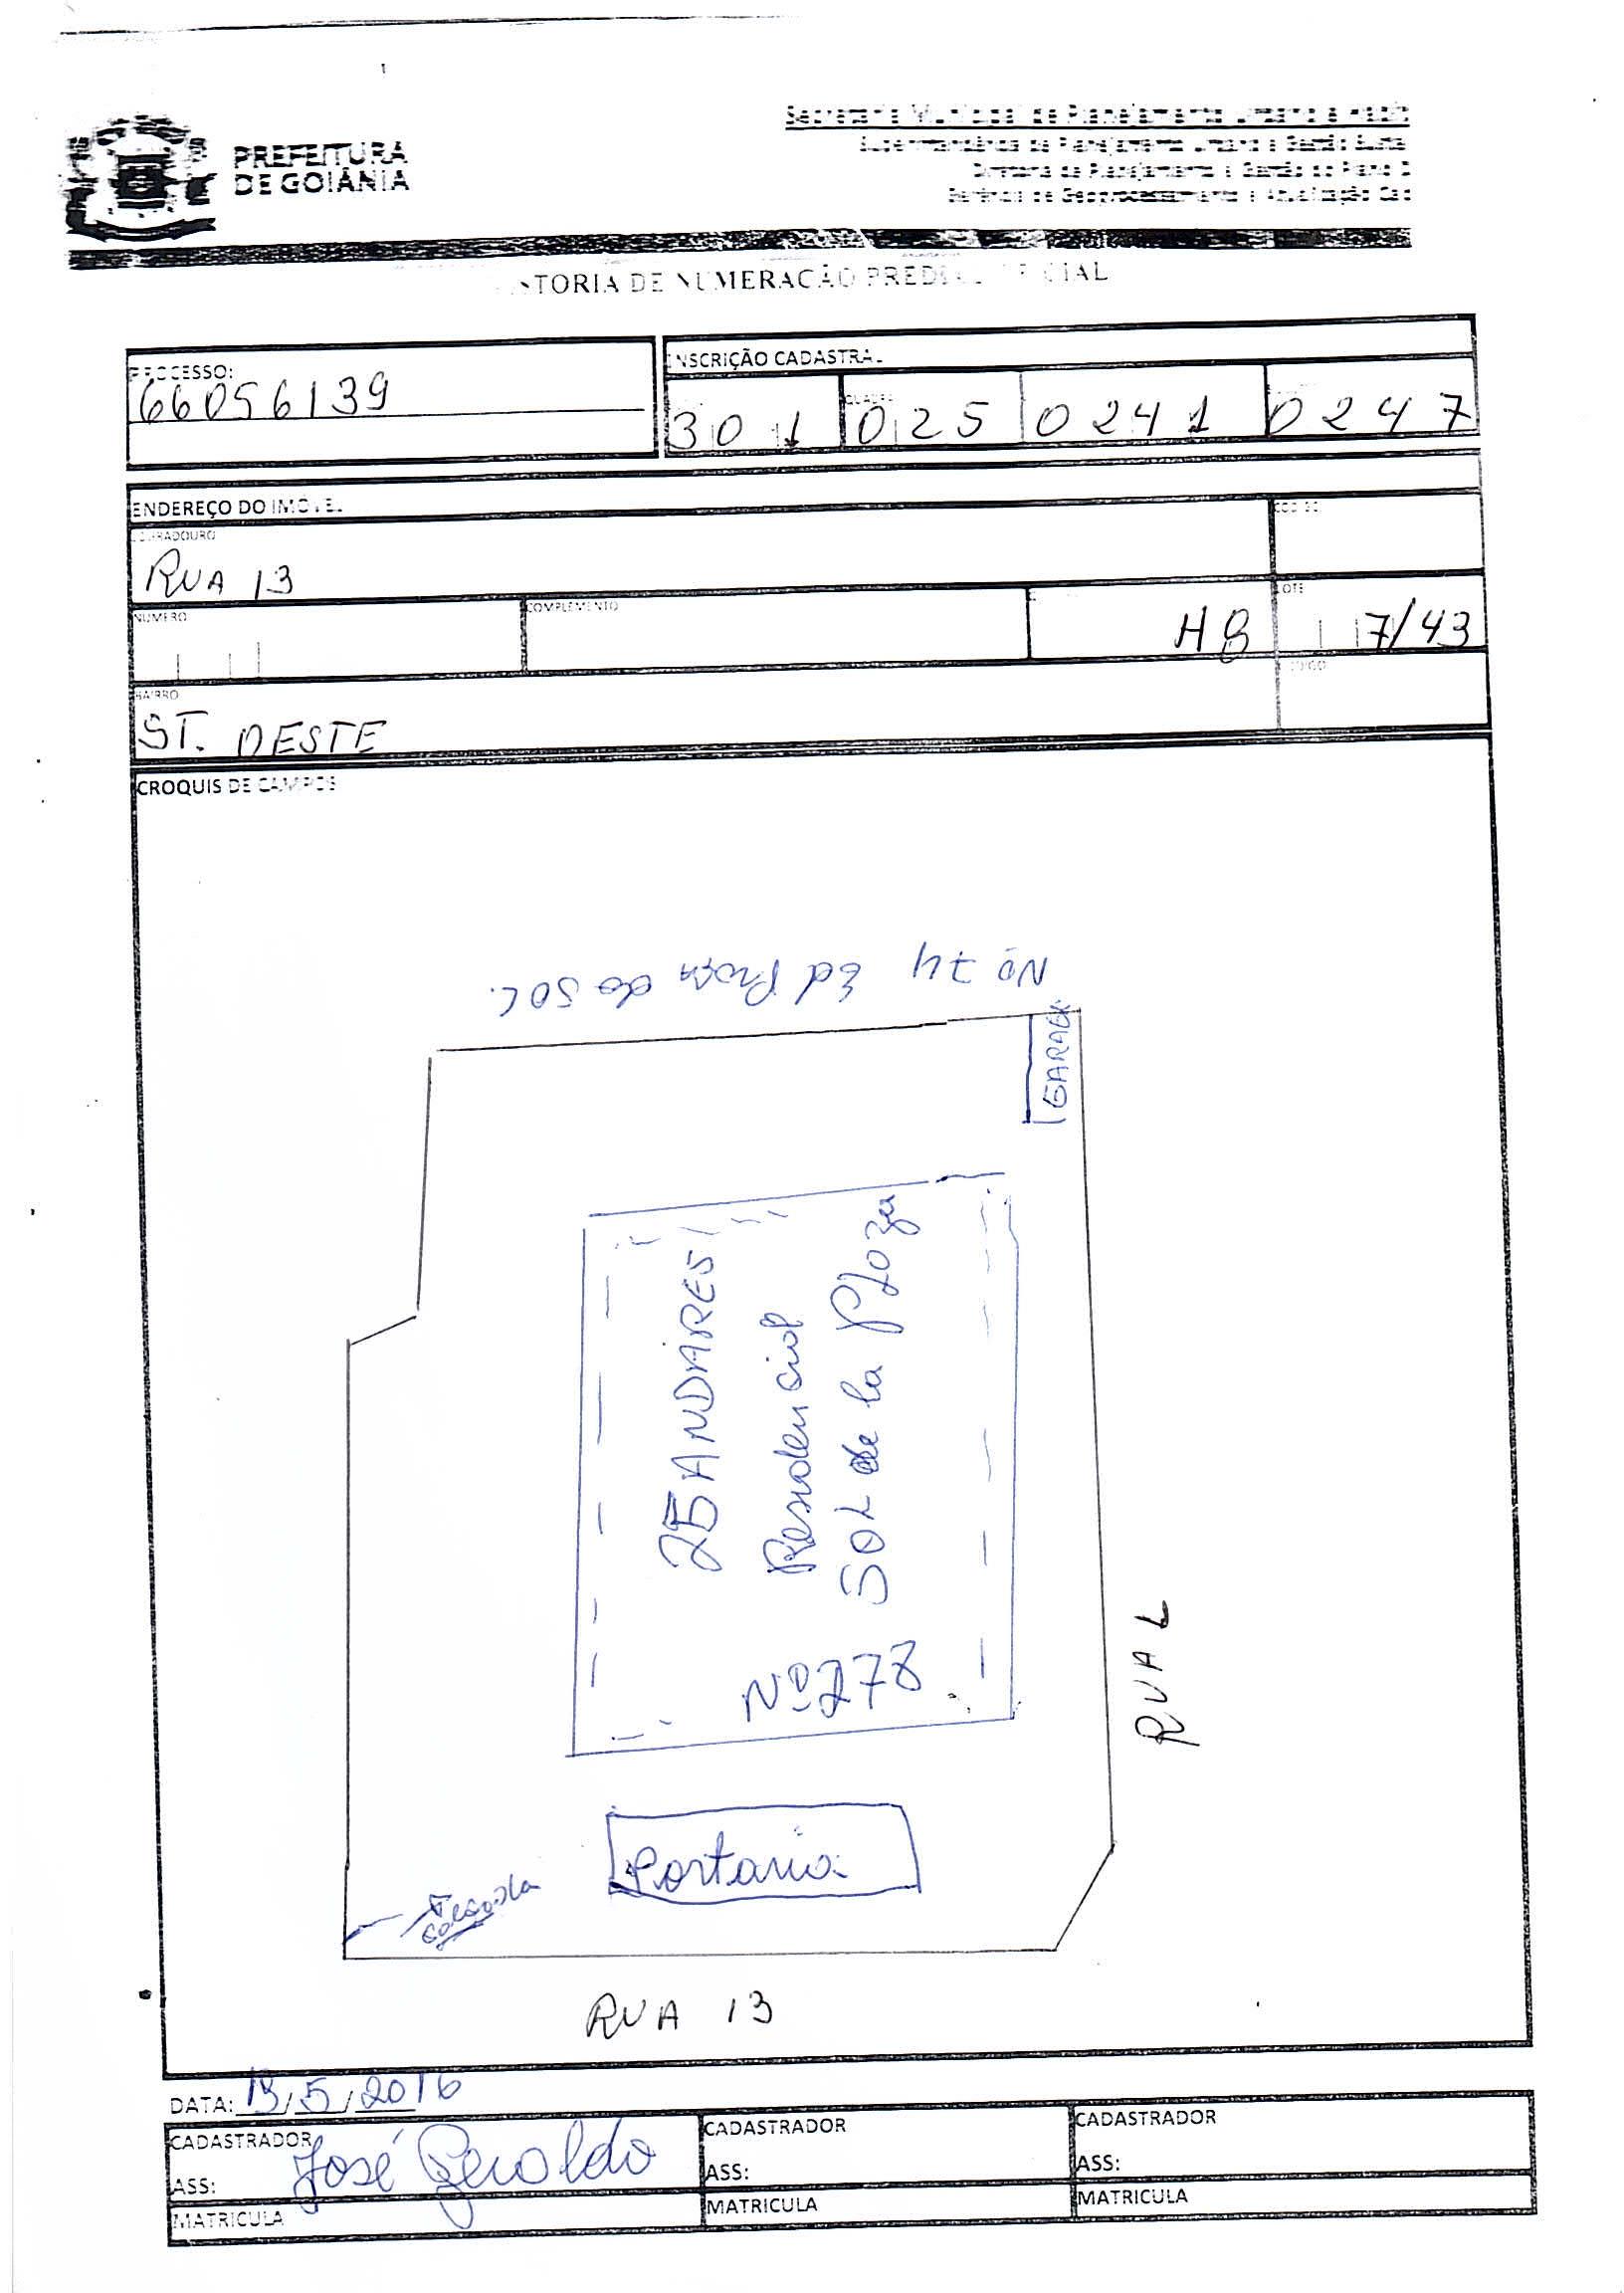 PREFEITURA
DE GOIÂNIA
Secretaria Municipal de Planejamento Urbano e Habit
Superintendência de Planejamento Urbano e Gestão Suste
Diretoria de Planejamento e Gestão do Plano D
Gerência de Geoprocessamento e Atualização Cad
ISTORIA DE NUMERAÇÃO PREDIAL OFICIAL
PROCESSO:
66056139
INSCRIÇÃO CADASTRAL
QUADRA
301 025 0241 0247
ENDEREÇO DO IMÓVEL
LOGRADOURO
CODIGO
RUA 13
NUMERO
COMPLEMENTO
LOTE
H8
7/43
BAIRRO
CODIGO
ST. OESTE
CROQUIS DE CAMPOS
Nº 74 Ed Praça do SOL.
GARAGEM
25 ANDARES
Residencial
SOL de la Plaza
Nº 278
RUA L
Portaria
RUA 13
DATA: 13/5/2016
CADASTRADOR
ASS: José Geraldo
MATRICULA
CADASTRADOR
ASS:
MATRICULA
CADASTRADOR
ASS:
MATRICULA